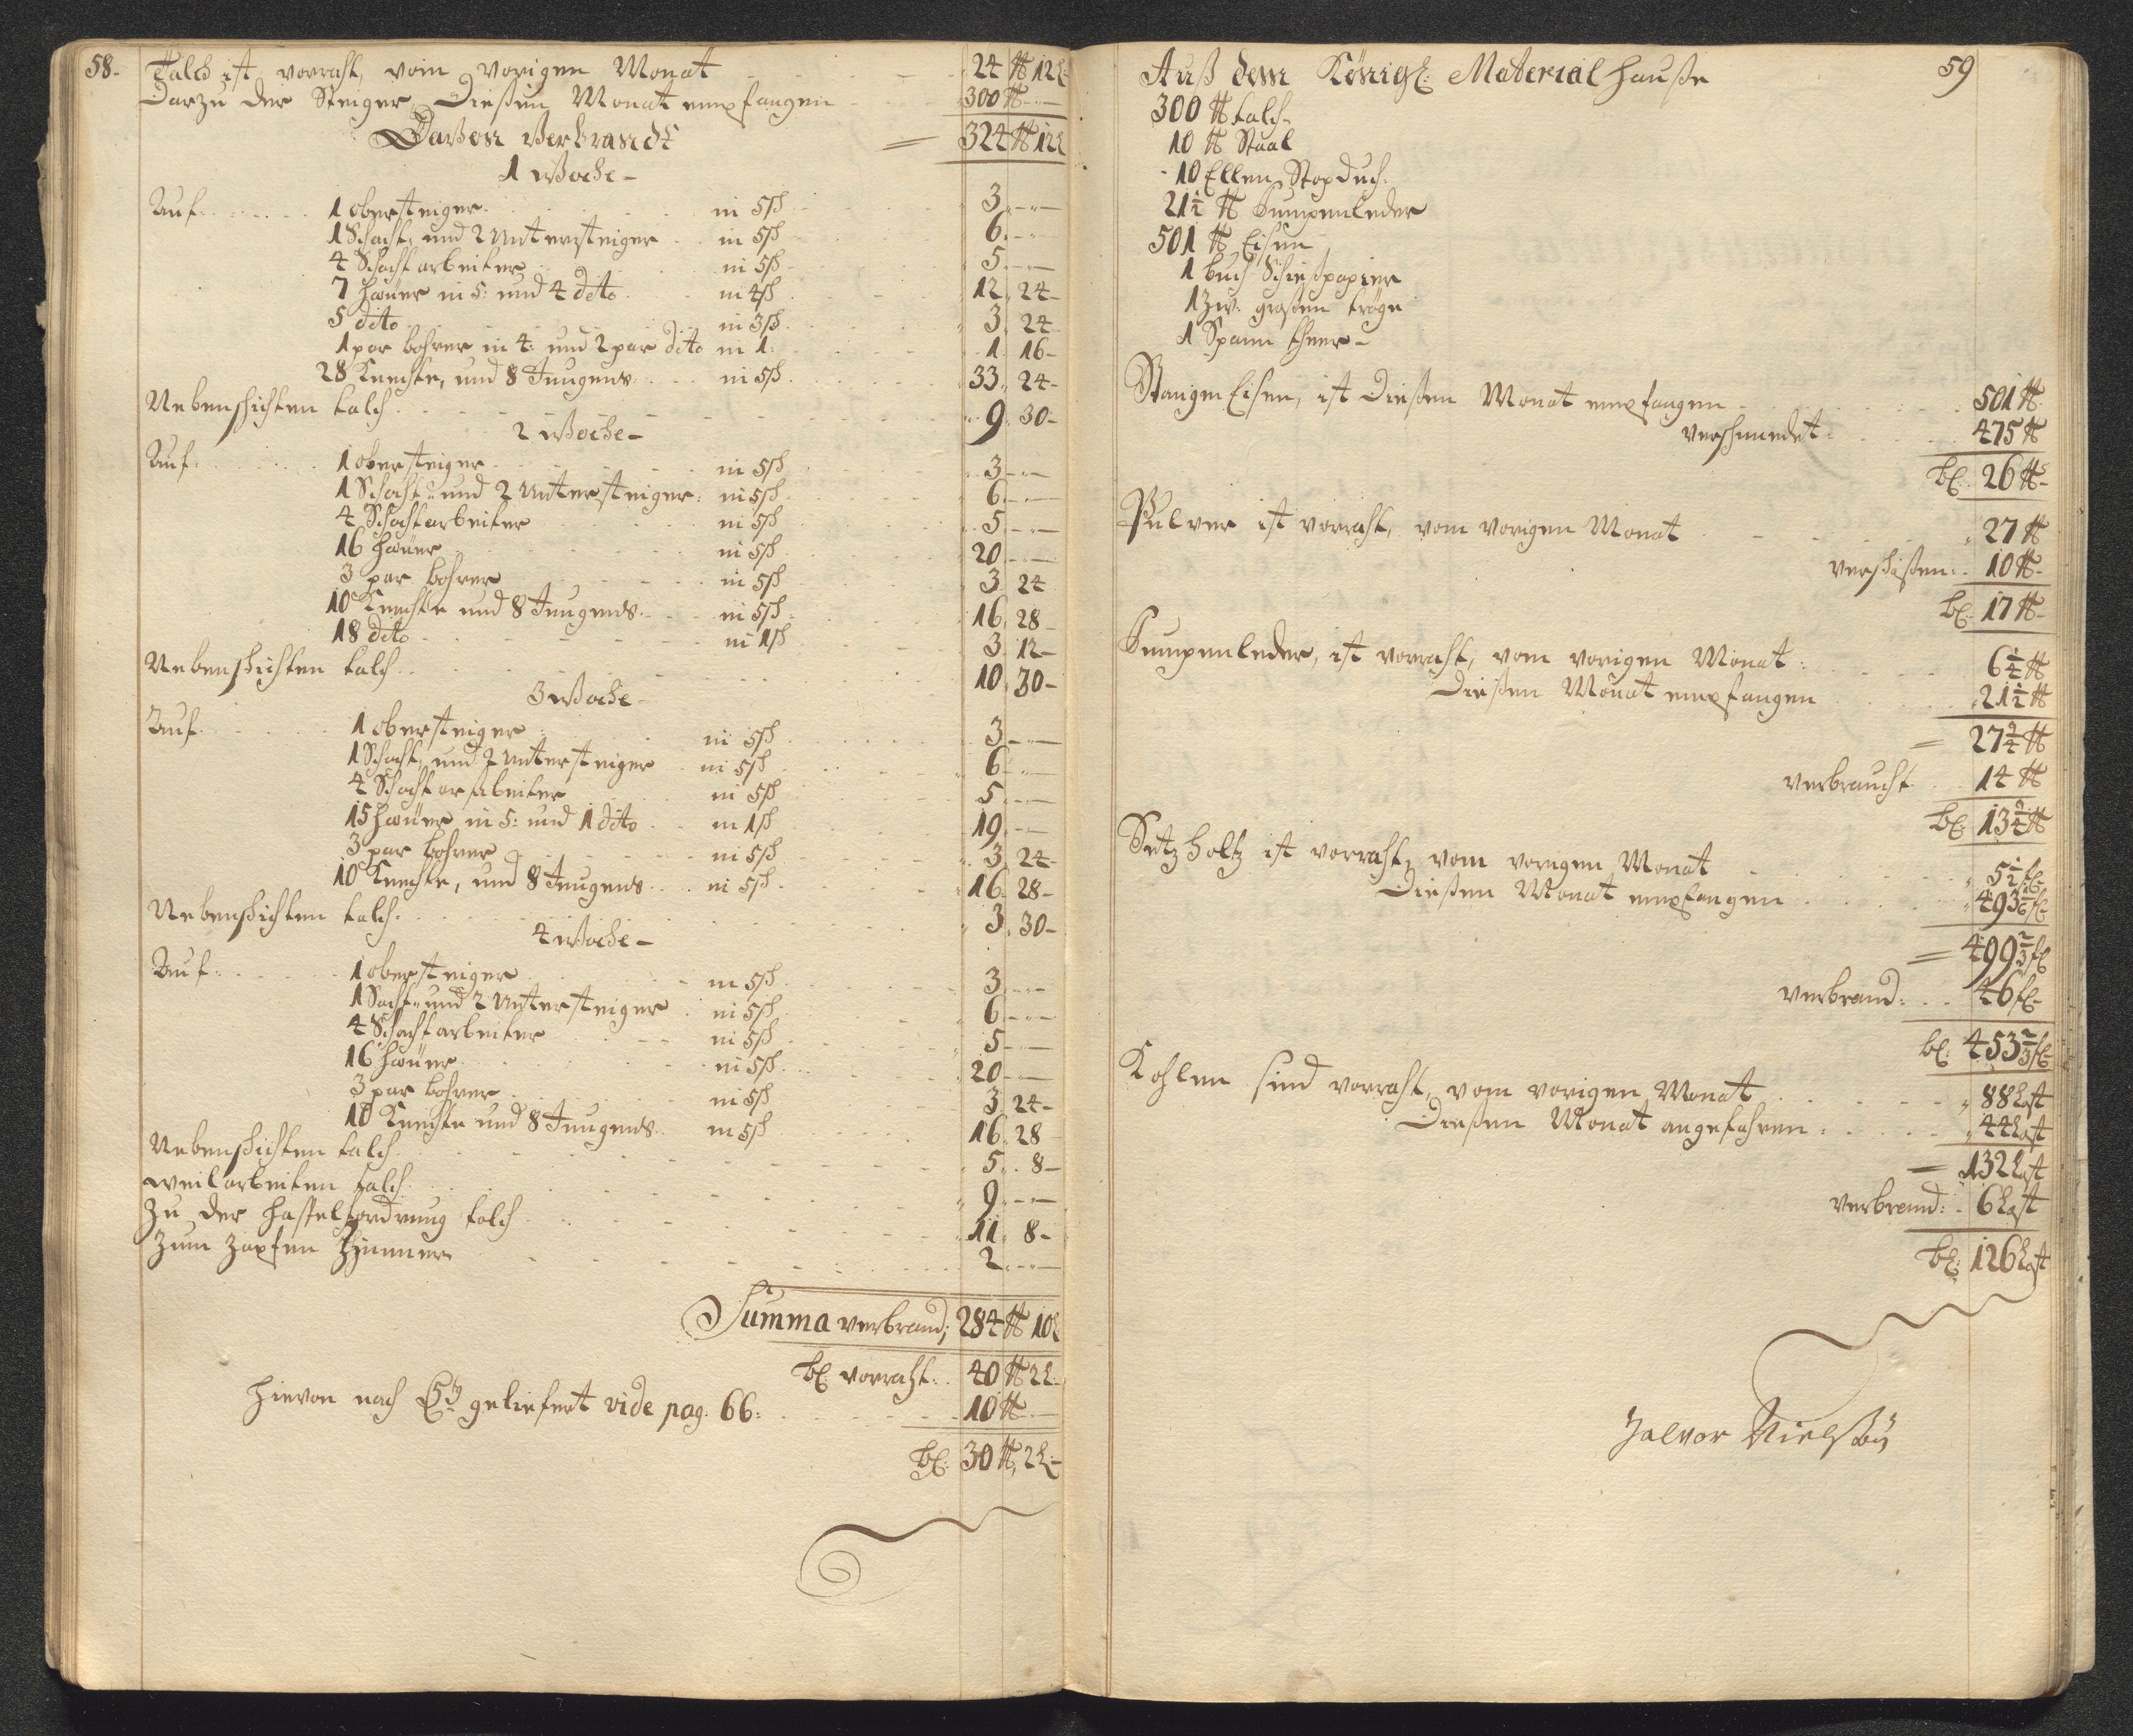 58.
Talch ist vorraht, vom vorigen Monat 24 ℔ 12 L
Darzu der Steiger, Dießen Monat empfangen 300 ℔
Davon Verbrandt = 324 ℔ 12 L
1 Woche
Auf 1 obersteiger in 5 sch 3
1 Schacht, und 2 Untersteiger in 5 sch 6
4 Schacht arbeiter in 5 sch 5
7 häuer in 5: und 4 dito in 4 sch 12 24
5 dito in 3 sch 3 24
1 par bohrer in 4: und 2 par dito in 1: 1 16
28 Knechte, und 8 Jungens in 5 sch 33 24
Nebenschichten talch 9 30
2 Woche
Auf 1 obersteiger in 5 sch 3
1 Schacht und 2 Untersteiger in 5 sch 6
4 Schacht arbeiter in 5 sch 5
16 häuer in 5 sch 20
3 par bohrer in 5 sch 3 24
10 Knechte und 8 Jungens in 5 sch 16 28
18 dito in 1 sch 3 12
Nebenschichten talch 10 30
3 Woche
Auf 1 obersteiger in 5 sch 3
1 Schacht, und 2 Untersteiger in 5 sch 6
4 Schacht arbeiter in 5 sch 5
15 häuer in 5: und 1 dito in 1 sch 19
3 par bohrer in 5 sch 3 24
10 Knechte, und 8 Jungens in 5 sch 16 28
Nebenschichten talch 3 30
4 Woche
Auf 1 obersteiger in 5 sch 3
1 Sacht und 2 Untersteiger in 5 sch 6
4 Schacht arbeiter in 5 sch 5
16 häuer in 5 sch 20
3 par bohrer in 5 sch 3 24
10 Knechte und 8 Jungens in 5 sch 16 28
Nebenschichten talch 5 8
weilarbeiten talch 9
Zu der haspelfordrung talch 11 8
Zum Zapfen Zimmer 2
Summa verbrand; 284 ℔ 10 L
bl: vorraht 40 ℔ 2 L
hievon nach geliefert vide pag: 66: 10 ℔
bl: 30 ℔ 2 L
59
Auß dem Königl: Material hauße
300 ℔ talch
10 ℔ Staal
10 Ellen Stopduch
21½ ℔ Pumpenleder
501 ℔ Eisen
1 buch Schießpapier
1 Zw: großen tröge
1 Spann theer
Stangen Eisen, ist Dießen Monat empfangen 501 ℔
verschmiedet 475 ℔
bl: 26 ℔
Pulver ist vorraht, vom vorigen Monat 27 ℔
verschißen: 10 ℔
bl: 17 ℔
Pumpenleder, ist vorraht, vom vorigen Monat: 6¼ ℔
Dießen Monat empfangen 21½ ℔
= 27¾ ℔
verbraucht 14 ℔
bl: 13¾ ℔
Setzholtz ist vorraht, vom vorigen Monat 5½ fl
Dießen Monat empfangen 493 1/6 fl
= 499⅔ fl
verbrand: 46 fl
bl: 453⅔ fl
Kohlen sind vorraht, vom vorigen Monat 88 Last
Dießen Monat angefahren: 44 Last
= 132 Last
verbrand: 6 Last
bl: 126 Last
Halvor Nielsøn